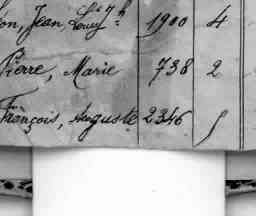 on, Jean, Louis 1900 4
Pierre, Marie 738 2
François, Auguste 2346